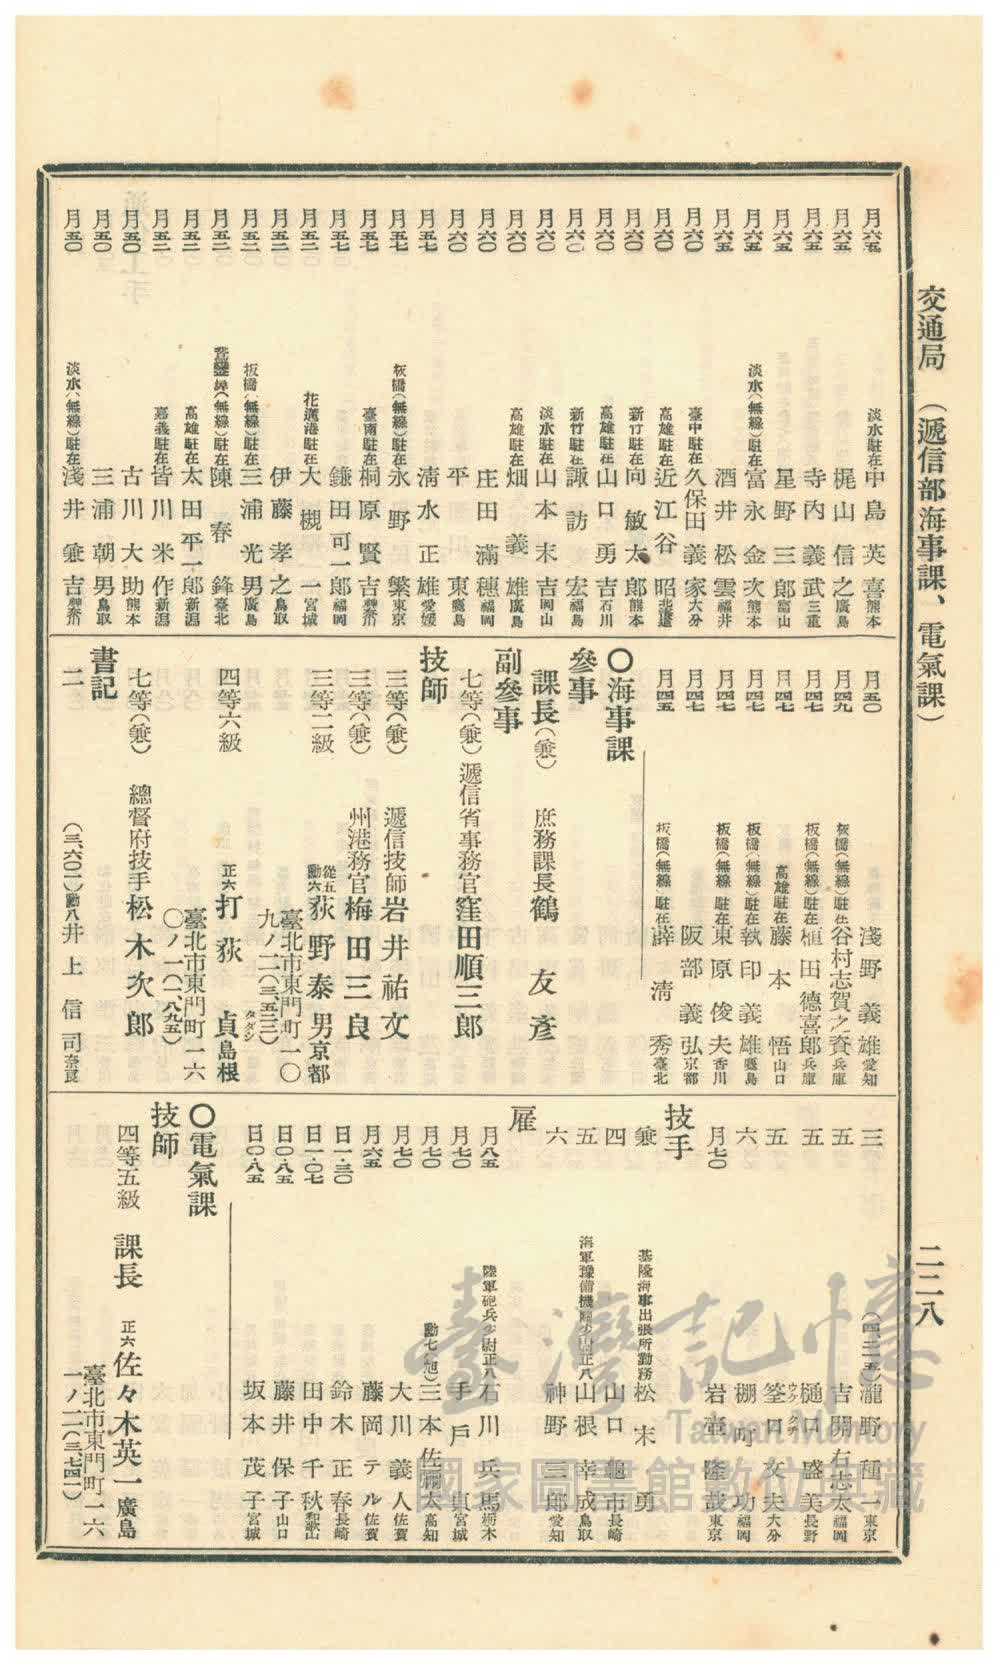 交通局 （遞信部海事課、電氣課）
二二八
月六五 淡水駐在 中島英喜 熊本
月六五 梶山信之 廣島
月六五 寺內義武 三重
月六五 星野三郎 富山
月六五 淡水（無線）駐在 富永金次 熊本
月六五 酒井松雲 福井
月六〇 臺中駐在 久保田義家 大分
月六〇 高雄駐在 近江谷昭 北海道
月六〇 新竹駐在 向敏太郎 熊本
月六〇 高雄駐在 山口勇吉 石川
月六〇 新竹駐在 諏訪宏 福島
月六〇 淡水駐在 山本末吉 岡山
月六〇 高雄駐在 畑義雄 廣島
月六〇 庄田滿穗 福岡
月六〇 平東 鹿島
月五七 清水正雄 愛媛
月五七 板橋（無線）駐在 永野繁 東京
月五七 臺南駐在 桐原賢吉 神奈川
月五七 鎌田可一郎 福岡
月五二 花蓮港駐在 大槻一 宮城
月五二 伊藤孝之 鳥取
月五二 板橋（無線）駐在 三浦光男 廣島
月五二 鵞鑾鼻（無線）駐在 陳春鋒 臺北
月五二 高雄駐在 太田平一郎 新潟
月五二 嘉義駐在 皆川米作 新潟
月五〇 古川大助 熊本
月五〇 三浦朝男 鳥取
月五〇 淡水（無線）駐在 淺井兼吉 神奈川
月五〇 淺野義雄 愛知
月四九 板橋（無線）駐在 谷村志賀之資 兵庫
月四七 板橋（無線）駐在 植田德喜郎 兵庫
月四七 高雄駐在 藤本悟 山口
月四七 板橋（無線）駐在 執印義雄 鹿島
月四七 板橋（無線）駐在 東原俊夫 香川
月四七 阪部義弘 京都
月四五 板橋（無線）駐在 薛清秀 臺北
〇海事課
參事
課長（兼） 庶務課長 鶴友彥
副參事
七等（兼） 遞信省事務官 窪田順三郎
技師
三等（兼） 遞信技師 岩井祐文
三等（兼） 州港務官 梅田三良
三等二級 從五勳六 荻野泰男 京都
臺北市東門町一〇九ノ二（三、五三三）
四等六級 正六 打荻貞 タダシ 島根
臺北市東門町一六〇ノ一（一、八九五）
七等（兼） 總督府技手 松木次郎
書記
二 （三、六〇一）勳八 井上信司 奈良
三 （四、二二五） 瀧野種一 東京
五 吉開右志太 福岡
五 樋口盛美 長野
五 筌口文夫 ウケグチ 大分
六 棚町功 福岡
月七〇 岩重隆哉 東京
技手
兼 基隆海事出張所勤務 松末勇
四 山口龜市 長崎
五 海軍豫備機關少尉正八 山根幸成 鳥取
六 神野三郎 愛知
雇
月八五 陸軍砲兵少尉正八 石川兵馬 栃木
月七〇 手戶貞 宮城
月七〇 勳七（旭） 三本佐彌太 高知
月七〇 大川義人 佐賀
月六五 藤岡テル 佐賀
日一・三〇 鈴木正春 長崎
日一・〇七 田中千秋 和歌山
日〇・八五 藤井保子 山口
日〇・八五 坂本茂子 宮城
〇電氣課
技師
四等五級 課長 正六 佐々木英一 廣島
臺北市東門町一六一ノ二（三、七四一）
臺灣記憶
Taiwan Memory
國家圖書館數位典藏